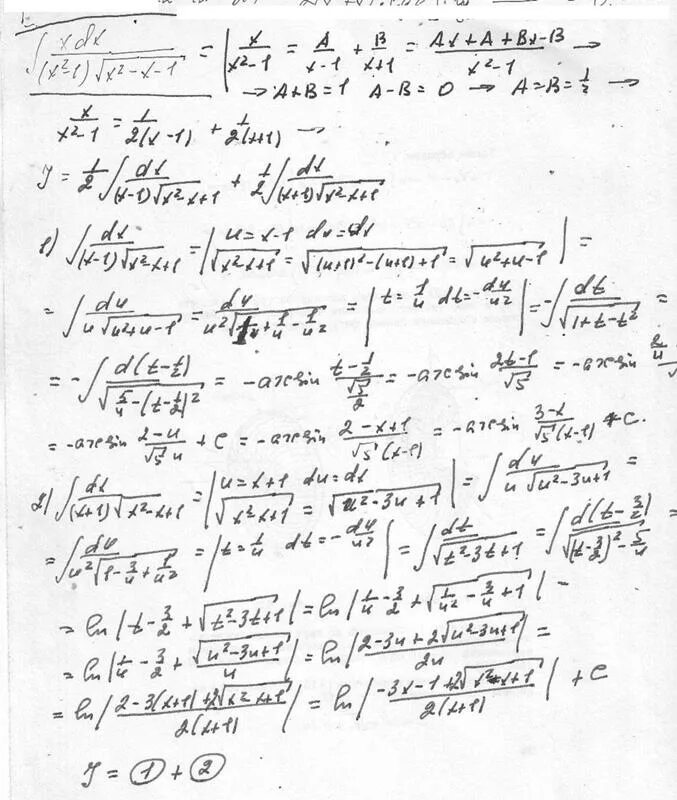 ∫ x dx / ((x²-1) √(x²-x-1)) = | x/(x²-1) = A/(x-1) + B/(x+1) = (Ax+A+Bx-B)/(x²-1) →
→ A+B=1 A-B=0 → A=B=1/2 →
x/(x²-1) = 1/(2(x-1)) + 1/(2(x+1)) →
J = 1/2 ∫ dx/((x-1)√(x²-x+1)) + 1/2 ∫ dx/((x+1)√(x²-x+1))
1) ∫ dx/((x-1)√(x²-x+1)) = | u=x-1 du=dx √(x²-x+1) = √((u+1)²-(u+1)+1) = √(u²+u-1) | =
= ∫ du/(u√(u²+u-1)) = du/(u²√(1+1/u-1/u²)) = | t=1/u dt=-du/u² | = -∫ dt/√(1+t-t²) =
= -∫ d(t-1/2)/√(5/4-(t-1/2)²) = -arcsin (t-1/2)/(√5/2) = -arcsin (2t-1)/√5 = -arcsin
= -arcsin (2-u)/(√5 u) + C = -arcsin (2-x+1)/(√5(x-1)) = -arcsin (3-x)/(√5(x-1)) + C.
2) ∫ dx/((x+1)√(x²-x+1)) = | u=x+1 du=dx √(x²-x+1) = √(u²-3u+1) | = ∫ du/(u√(u²-3u+1)) =
= ∫ du/(u²√(1-3/u+1/u²)) = | t=1/u dt=-du/u² | = ∫ dt/√(t²-3t+1) = ∫ d(t-3/2)/√((t-3/2)²-5/4) =
= ln | t-3/2 + √(t²-3t+1) | = ln | 1/u-3/2 + √(1/u²-3/u+1) | =
= ln | 1/u-3/2 + √(u²-3u+1)/u | = ln | (2-3u+2√(u²-3u+1))/(2u) | =
= ln | (2-3(x+1)+2√(x²-x+1))/(2(x+1)) | = ln | (-3x-1+2√(x²-x+1))/(2(x+1)) | + C
J = ① + ②